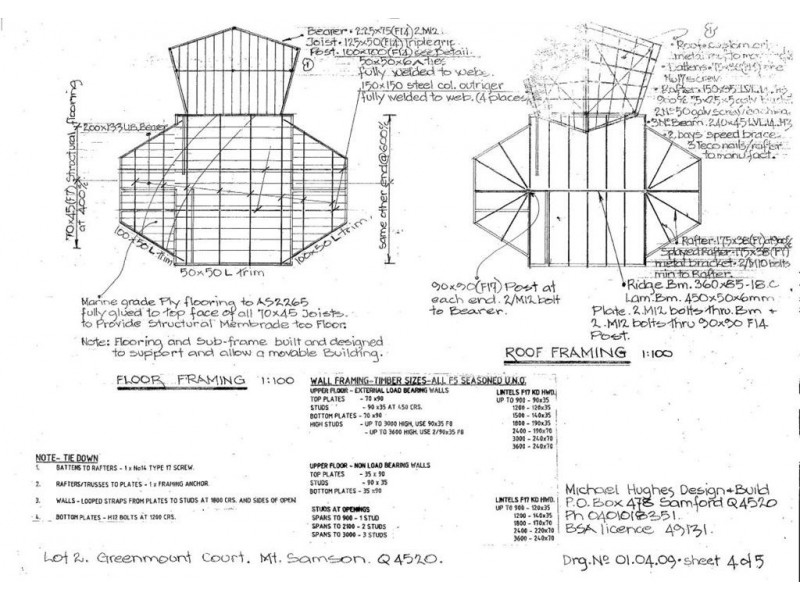 Bearer • 225x75(F14) 2.M12.
Joist • 125x50(F14) Triple grip
Post. 100x100(F14) see Detail
50x50x6 A ties
fully welded to webs.
150x150 steel col. outriger
fully welded to web. (4 places)
200x133 U.B. Bearer
70x45(F7) structural flooring
at 400%
same other end @ 600%
100x50 L trim
50x50 L trim
100x50 L trim
Marine grade Ply flooring to AS2265
fully glued to top face of all 70x45 Joists.
to Provide Structural Membrade too Floor.
Note: Flooring and Sub-frame built and designed
to support and allow a movable Building.
FLOOR FRAMING 1:100
• Roof • custom
• Battens •
• Rafter • 150x35 LVL
2 bays speed brace
3 Teco nails/rafter
to manufact.
• Rafter • 175x38(F7) at 900%
Splayed Rafter • 175x38(F7)
metal bracket • 2/M10 bolts
min to Rafter.
• Ridge Bm. 360x85-18.C
Lam. Bm. 450x50x6mm
Plate. 2.M12 bolts thru. Bm +
2. M12 bolts thru 90x90 F14
Post.
90x90(F17) Post at
each end. 2/M12 bolt
to Bearer.
ROOF FRAMING 1:100
WALL FRAMING-TIMBER SIZES-ALL F5 SEASONED U.N.O.
UPPER FLOOR - EXTERNAL LOAD BEARING WALLS
TOP PLATES - 70 x90
STUDS - 90 x35 AT 450 CRS.
BOTTOM PLATES - 70 x90
HIGH STUDS - UP TO 3000 HIGH, USE 90x35 F8
- UP TO 3600 HIGH, USE 2/90x35 F8
LINTELS F17 KD HWD.
UP TO 900 - 90x35
1200 - 120x35
1500 - 140x35
1800 - 190x35
2400 - 190x70
3000 - 240x70
3600 - 240x70
UPPER FLOOR - NON LOAD BEARING WALLS
TOP PLATES - 35 x 90
STUDS - 90 x 35
BOTTOM PLATES - 35 x90
STUDS AT OPENINGS
SPANS TO 900 - 1 STUD
SPANS TO 2100 - 2 STUDS
SPANS TO 3000 - 3 STUDS
LINTELS F17 KD HWD.
UP TO 900 - 120x35
1200 - 140x35
1800 - 170x70
2400 - 220x70
3600 - 240x70
NOTE- TIE DOWN
1. BATTENS TO RAFTERS - 1 x No14 TYPE 17 SCREW.
2. RAFTERS/TRUSSES TO PLATES - 1 x FRAMING ANCHOR.
3. WALLS - LOOPED STRAPS FROM PLATES TO STUDS AT 1800 CRS. AND SIDES OF OPEN
4. BOTTOM PLATES - M12 BOLTS AT 1200 CRS.
Michael Hughes Design & Build
P.O. Box 478 Samford Q4520
Ph 0401018351.
BSA licence 49131.
Lot 2. Greenmount Court. Mt. Samson. Q 4520.
Drg. No 01.04.09 • sheet 4 of 5